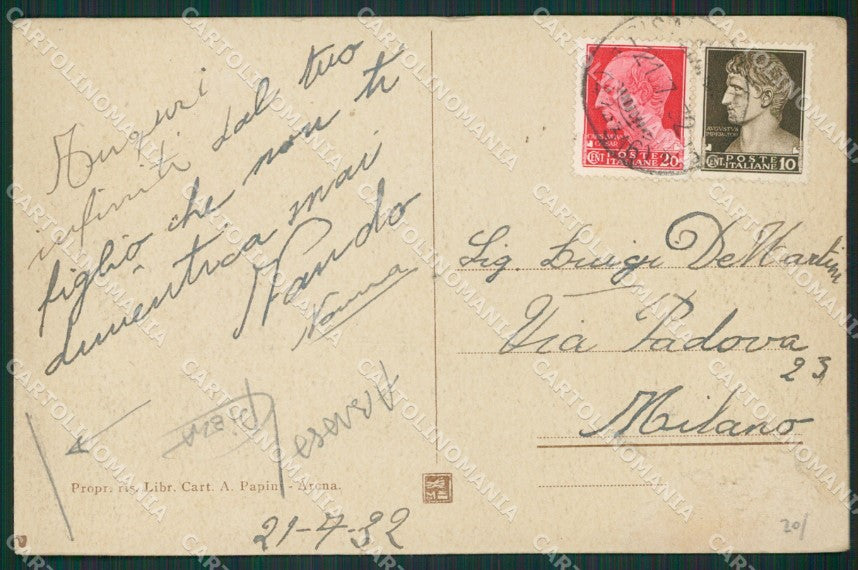 Auguri
infiniti dal tuo
figlio che non ti
dimentica mai
Nando
Norma
21-7-32
Propr. ris. Libr. Cart. A. Papini - Arena.
CENT. POSTE ITALIANE 20
AVGVSTVS
IMPERATOR
CENT. POSTE ITALIANE 10
Sig. Luigi De Martini
Via Padova
23
Milano
20/
CARTOLINOMANIA